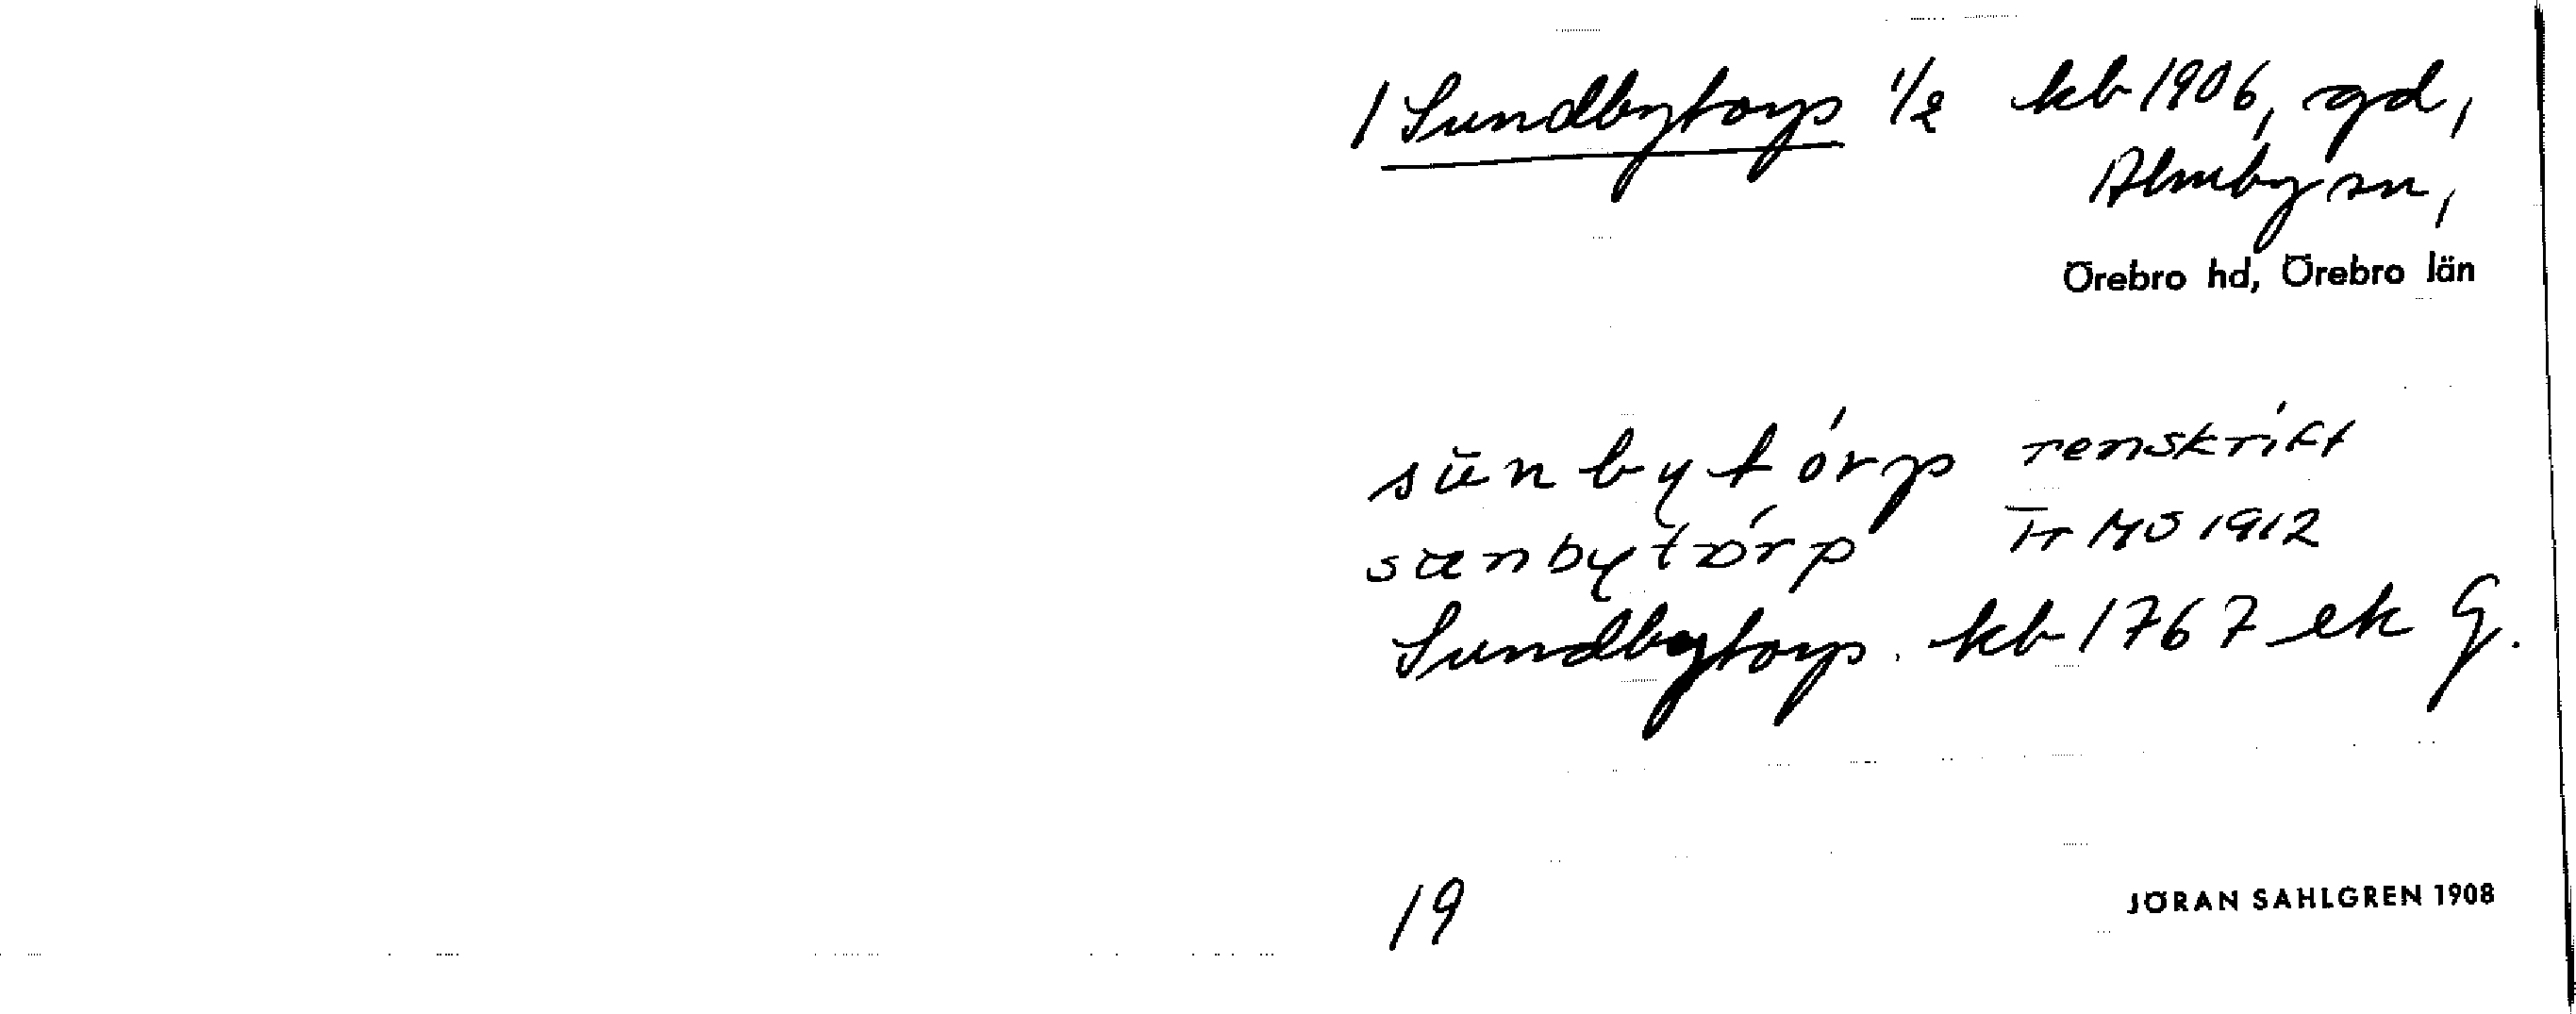 1 Sundbytorp 1/2 kb 1906, gd,
Almby sn,
Örebro hd, Örebro län
sūnbytórp renskrift
sūnbytórp fr MS 1912
Sundbytorp. kb 1767 ek G.
19
JÖRAN SAHLGREN 1908